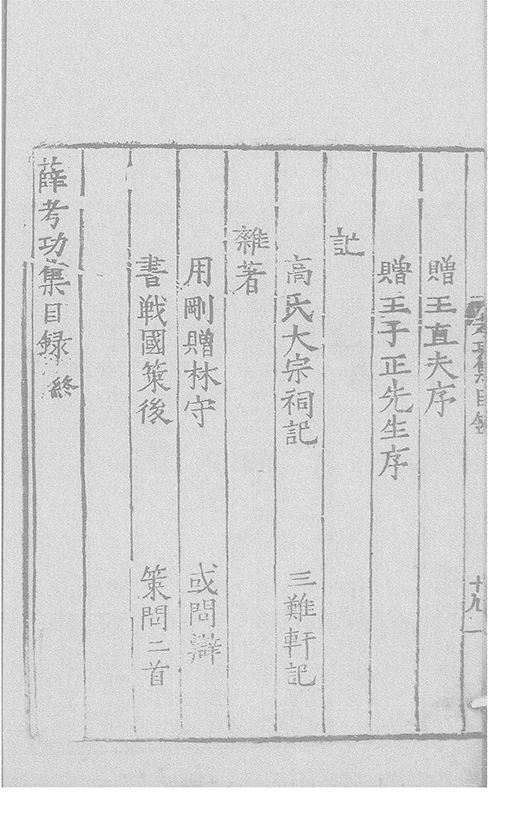 考功集目錄 十九
贈王直夫序
贈王子正先生序
記
高氏大宗祠記 三難軒記
雜著
用剛贈林守 或問辯
書戰國策後 策問二首
薛考功集目録終